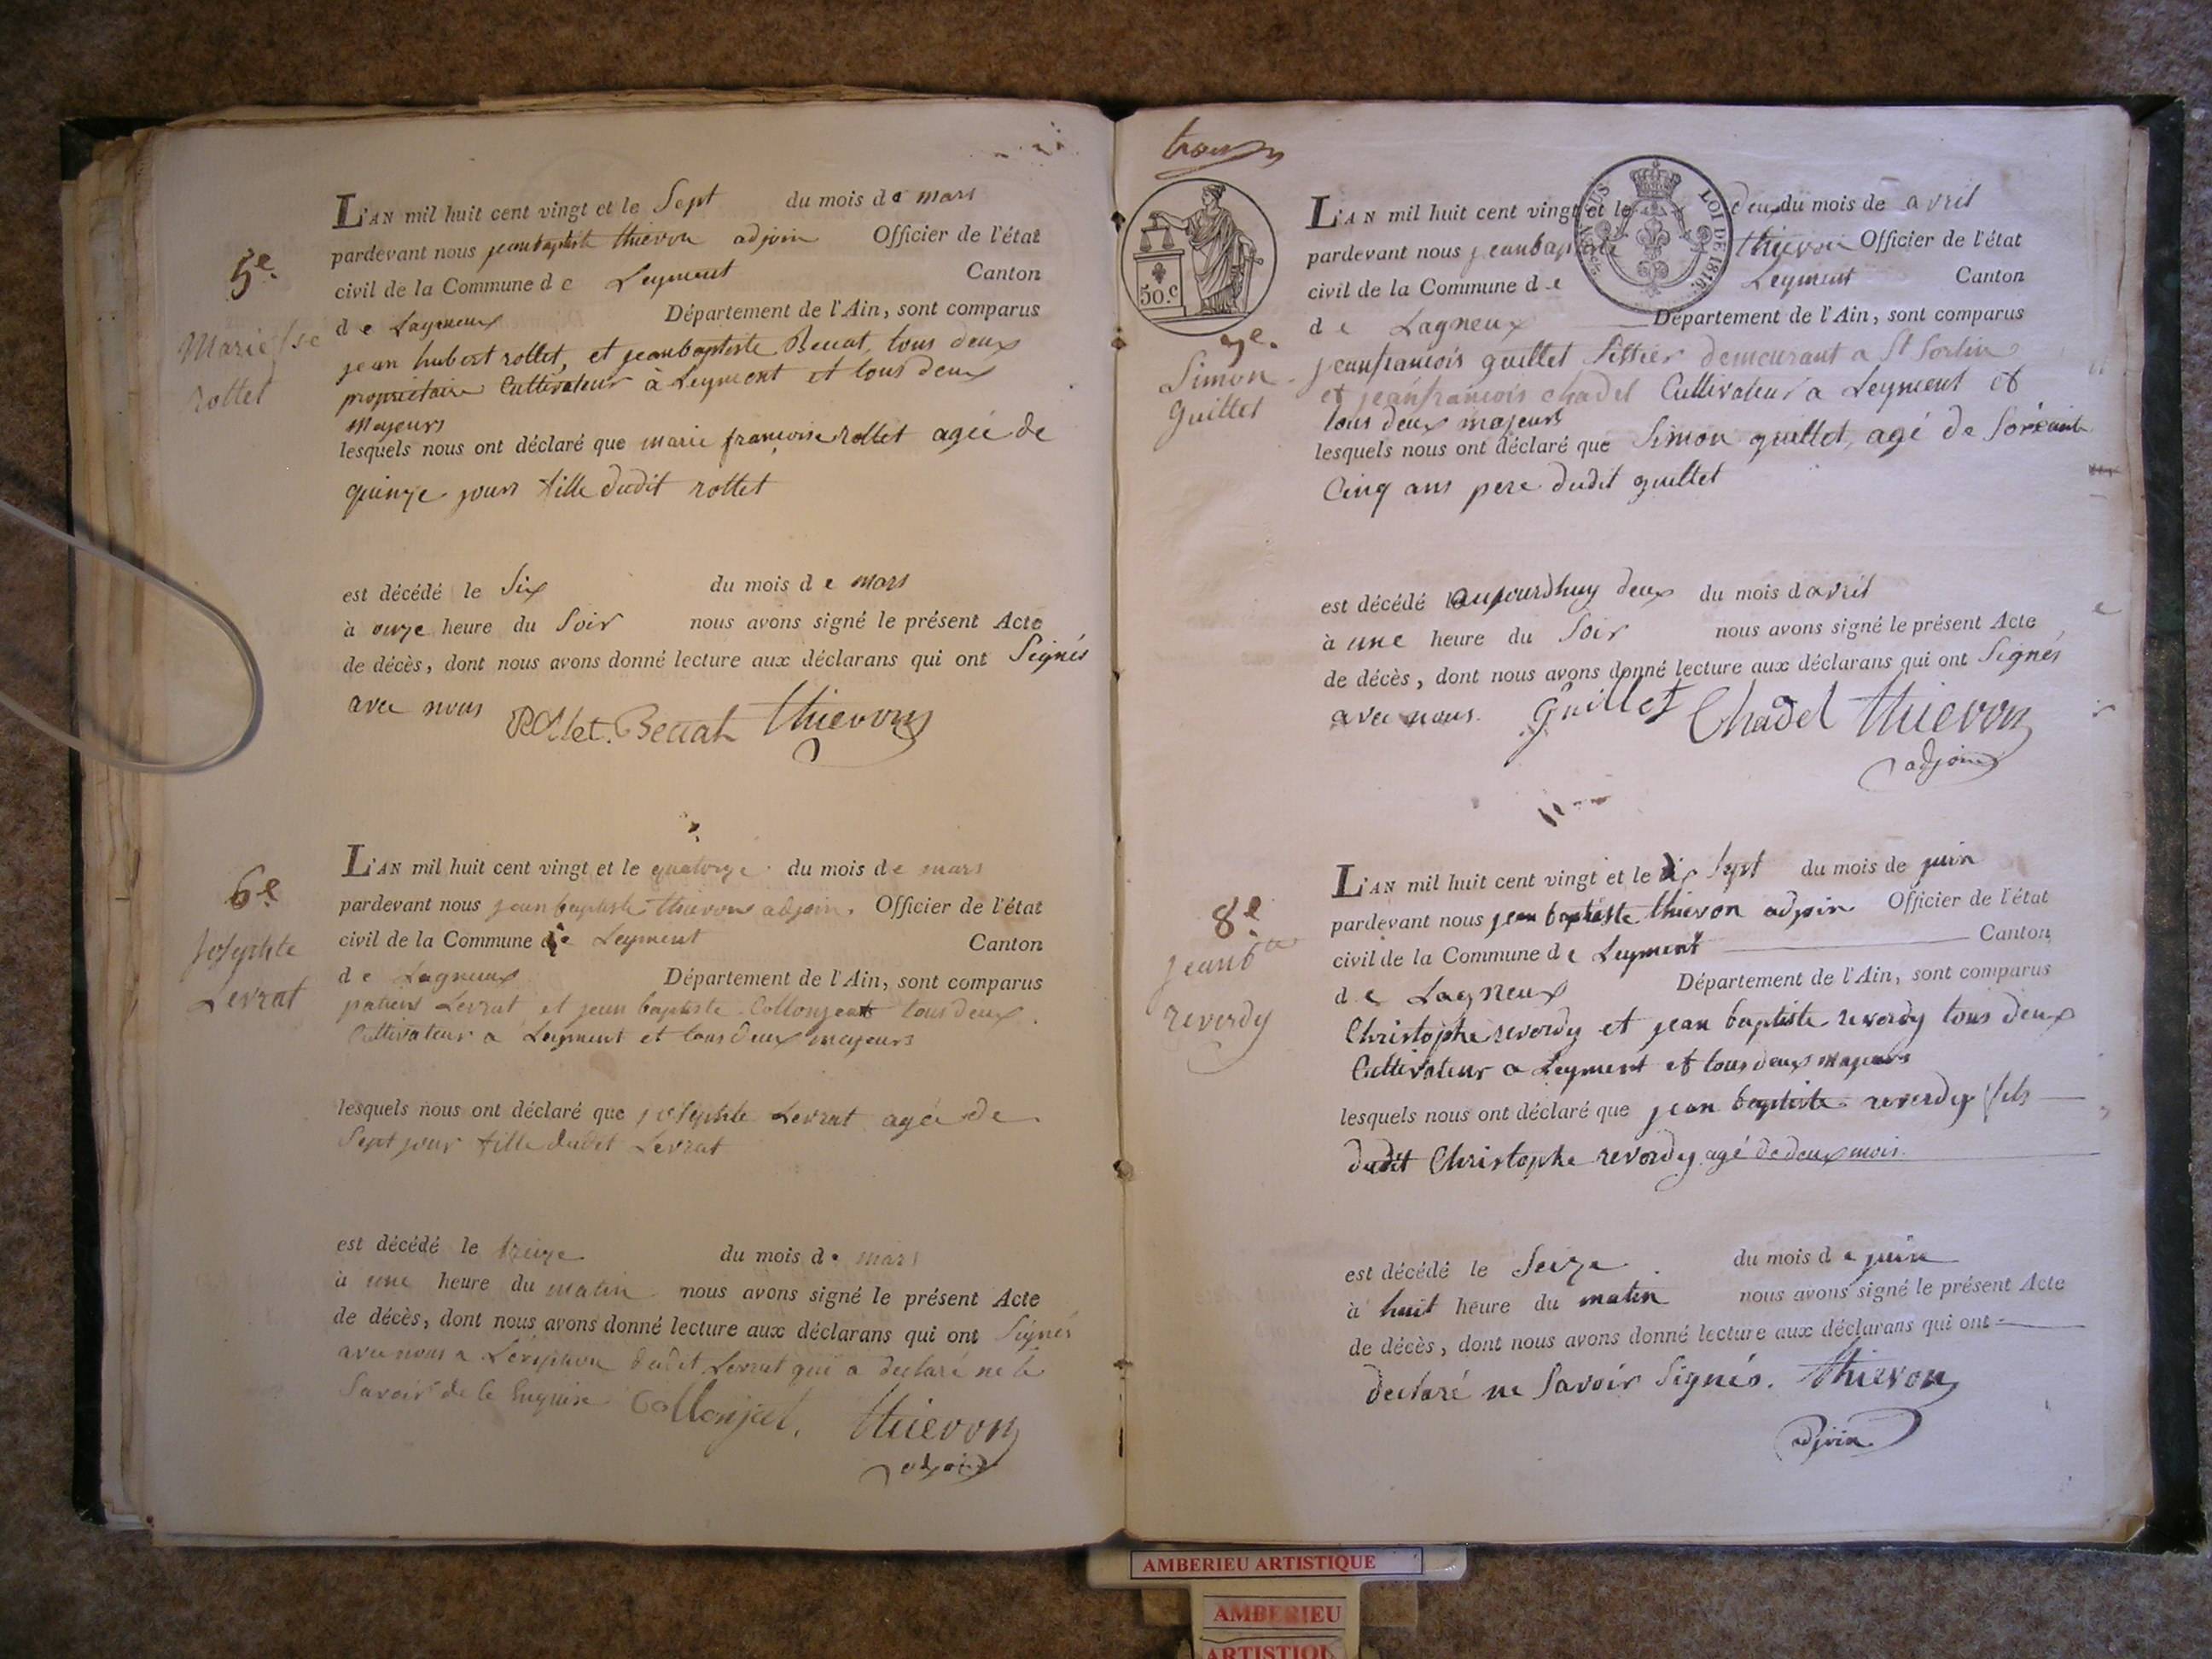 5e.
Marie fse
rottet
L'AN mil huit cent vingt et le Sept du mois de mars
pardevant nous jeanbaptiste thievon adjoin Officier de l'état
civil de la Commune de Leyment Canton
de Lagneux Département de l'Ain, sont comparus
jean hubert rottet, et jeanbaptiste Beuat, tous deux
propriétaire Cultivateur à Leyment et tous deux
majeurs
lesquels nous ont déclaré que marie françoise rottet agée de
quinze jours fille dudit rottet
est décédé le Six du mois de mars
à onze heure du Soir nous avons signé le présent Acte
de décès, dont nous avons donné lecture aux déclarans qui ont Signés
avec nous Rottet. Beuat thievon
6e
josephte
Levrat
L'AN mil huit cent vingt et le quatorze du mois de mars
pardevant nous jean baptiste thievon adjoin. Officier de l'état
civil de la Commune de Leyment Canton
de Lagneux Département de l'Ain, sont comparus
Levrat et jean baptiste Collonjeat tous deux
Cultivateur a Leyment et tous deux majeurs
lesquels nous ont déclaré que josephte Levrat agée de
Sept jour fille dudit Levrat
est décédé le treize du mois de mars
à une heure du matin nous avons signé le présent Acte
de décès, dont nous avons donné lecture aux déclarans qui ont Signés
avec nous a Lexeption dudit Levrat qui a declaré ne le
Savoir de ce Collonjeat. thievon
adjoin
SUS
LOI DE 1816.
50.c
7e.
Simon
guillet
L'AN mil huit cent vingt et le deux du mois de avril
pardevant nous jeanbaptiste thievon Officier de l'état
civil de la Commune de Leyment Canton
de Lagneux Département de l'Ain, sont comparus
jeanfrancois guillet demeurant a St Sorlin
et jeanfrancois chadel Cultivateur a Leyment et
tous deux majeurs
lesquels nous ont déclaré que Simon guillet, agé de Soixante
Cinq ans pere dudit guillet
est décédé aujourdhuy deux du mois d avril
à une heure du Soir nous avons signé le présent Acte
de décès, dont nous avons donné lecture aux déclarans qui ont Signés
avec nous. Guillet Chadel thievon
adjoin
8e.
jean bte
reverdy
L'AN mil huit cent vingt et le dix Sept du mois de juin
pardevant nous jean baptiste thievon adjoin Officier de l'état
civil de la Commune de Leyment Canton
de Lagneux Département de l'Ain, sont comparus
Christophe reverdy et jean baptiste reverdy tous deux
Cultivateur a Leyment et tous deux majeurs
lesquels nous ont déclaré que jean baptiste reverdy fils
dudit Christophe reverdy agé de deux mois.
est décédé le Seize du mois de juin
à huit heure du matin nous avons signé le présent Acte
de décès, dont nous avons donné lecture aux déclarans qui ont
declaré ne Savoir Signés. thievon
adjoin
AMBERIEU ARTISTIQUE
AMBERIEU